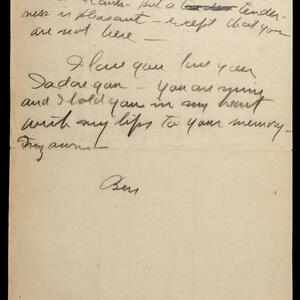 but a tender-
ness is pleasant - except that you
are not here -
I love you love you
I adore you - you are mine
and I hold you in my heart
with my lips to your memory -
my own -
Ben